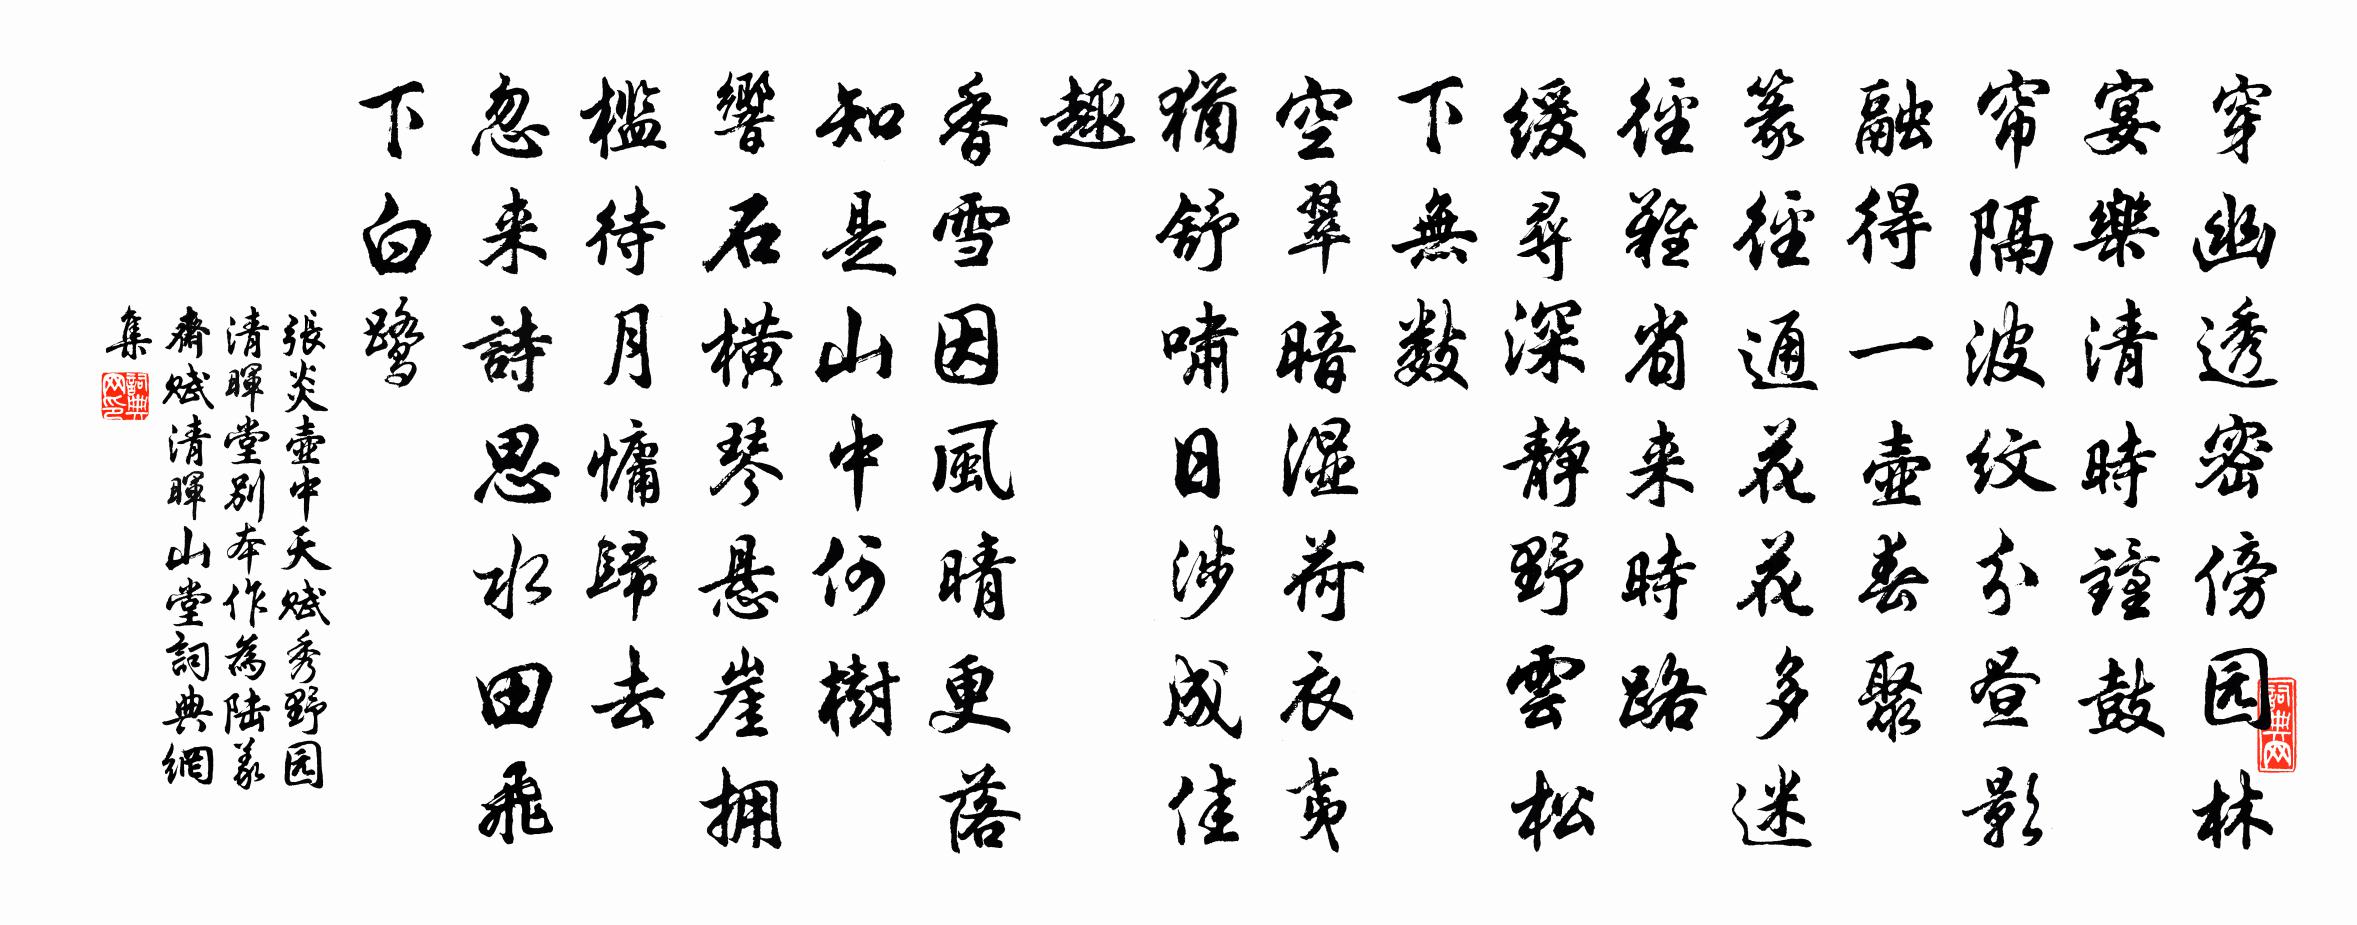 穿幽透密傍园林
宴樂清時鐘鼓
帘隔波纹分昼影
融得一壺春聚
篆徑通花花多迷
徑難省来時路
缓尋深静野雲松
下無數
空翠暗湿荷衣夷
猶舒嘯日涉成佳
趣
香雪因風晴更落
知是山中何樹
響石横琴悬崖拥
檻待月慵歸去
忽来詩思水田飛
下白鹭
張炎壺中天赋秀野园
清暉堂别本作為陆義
齋赋清暉山堂詞典網
集
詞典网
詞典网印